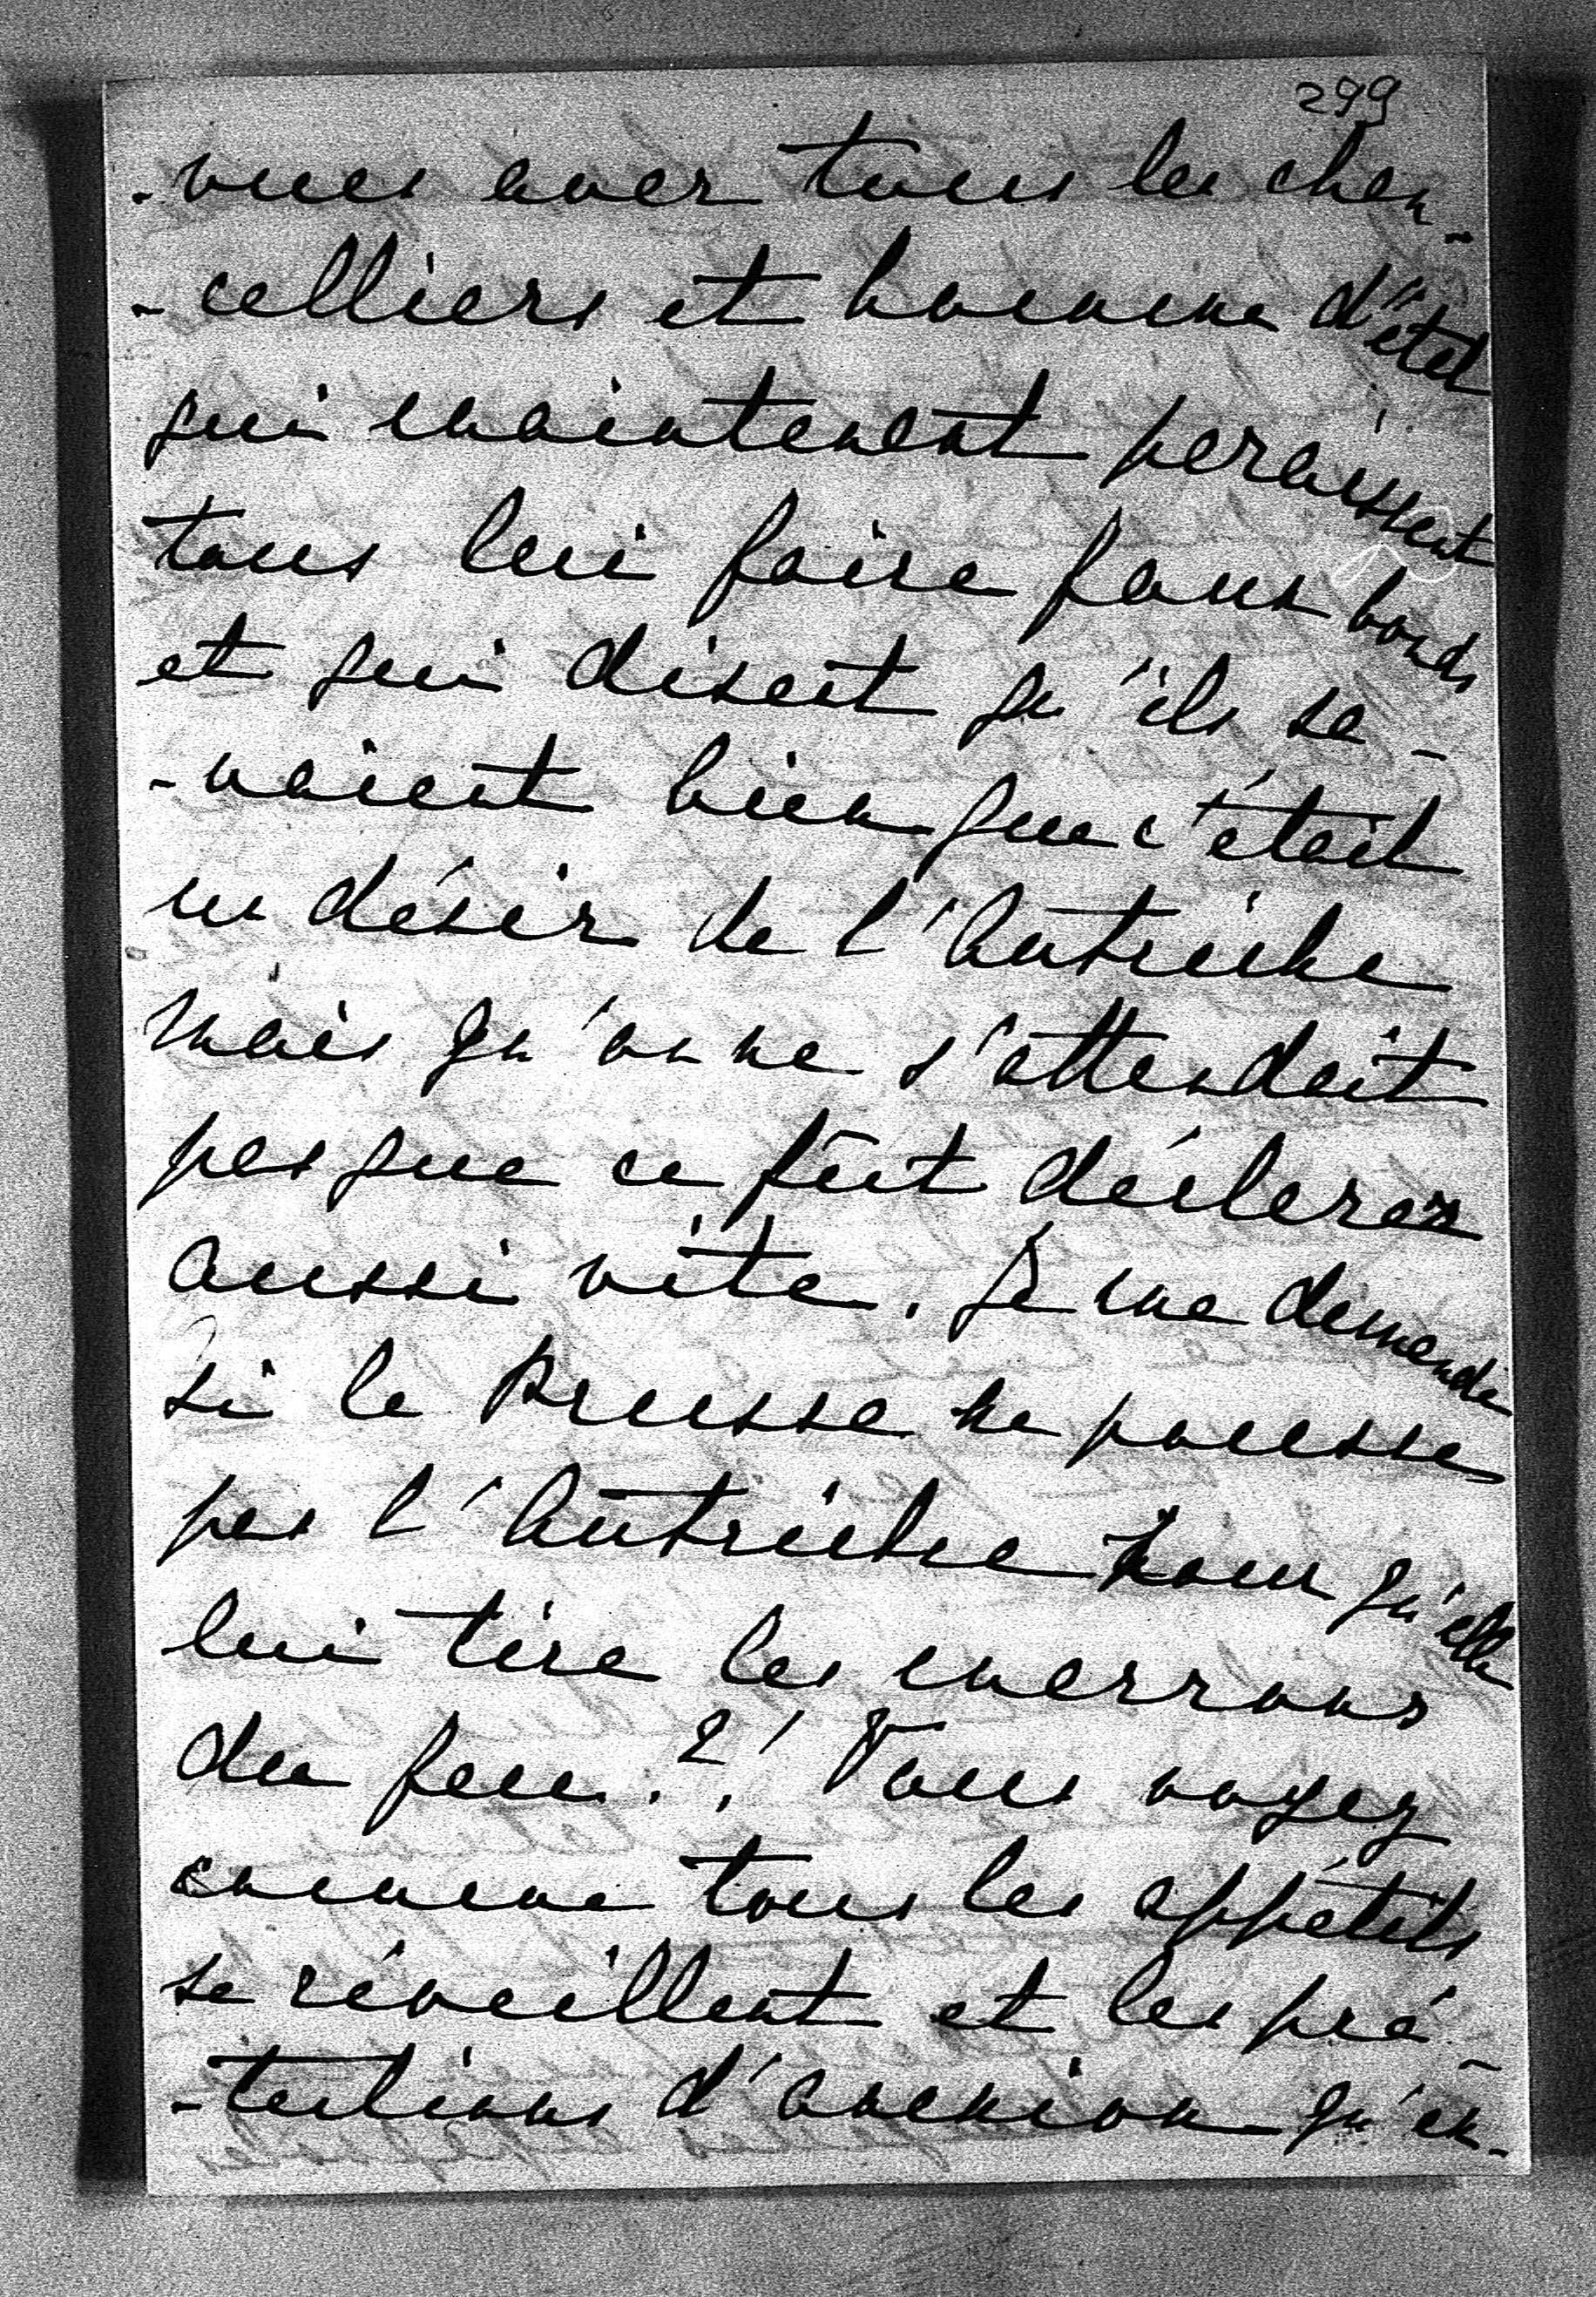 299
-vues avec tous les chan-
-celliers et homme d'état
qui maintenant paraissent
tous lui faire faux bonds
et qui disent qu'ils sa-
-vaient bien que c'était
un désir de l'Autriche
mais qu'on ne s'attendait
pas que ce fut déclarer
aussi vite. Je me demande
si la Prusse ne pousse
pas l'Autriche pour qu'elle
lui tire les marrons
du feu.?! Vous voyez
comme tous les appétits
se réveillent et les pré-
-tentions d'anexion qu'en-